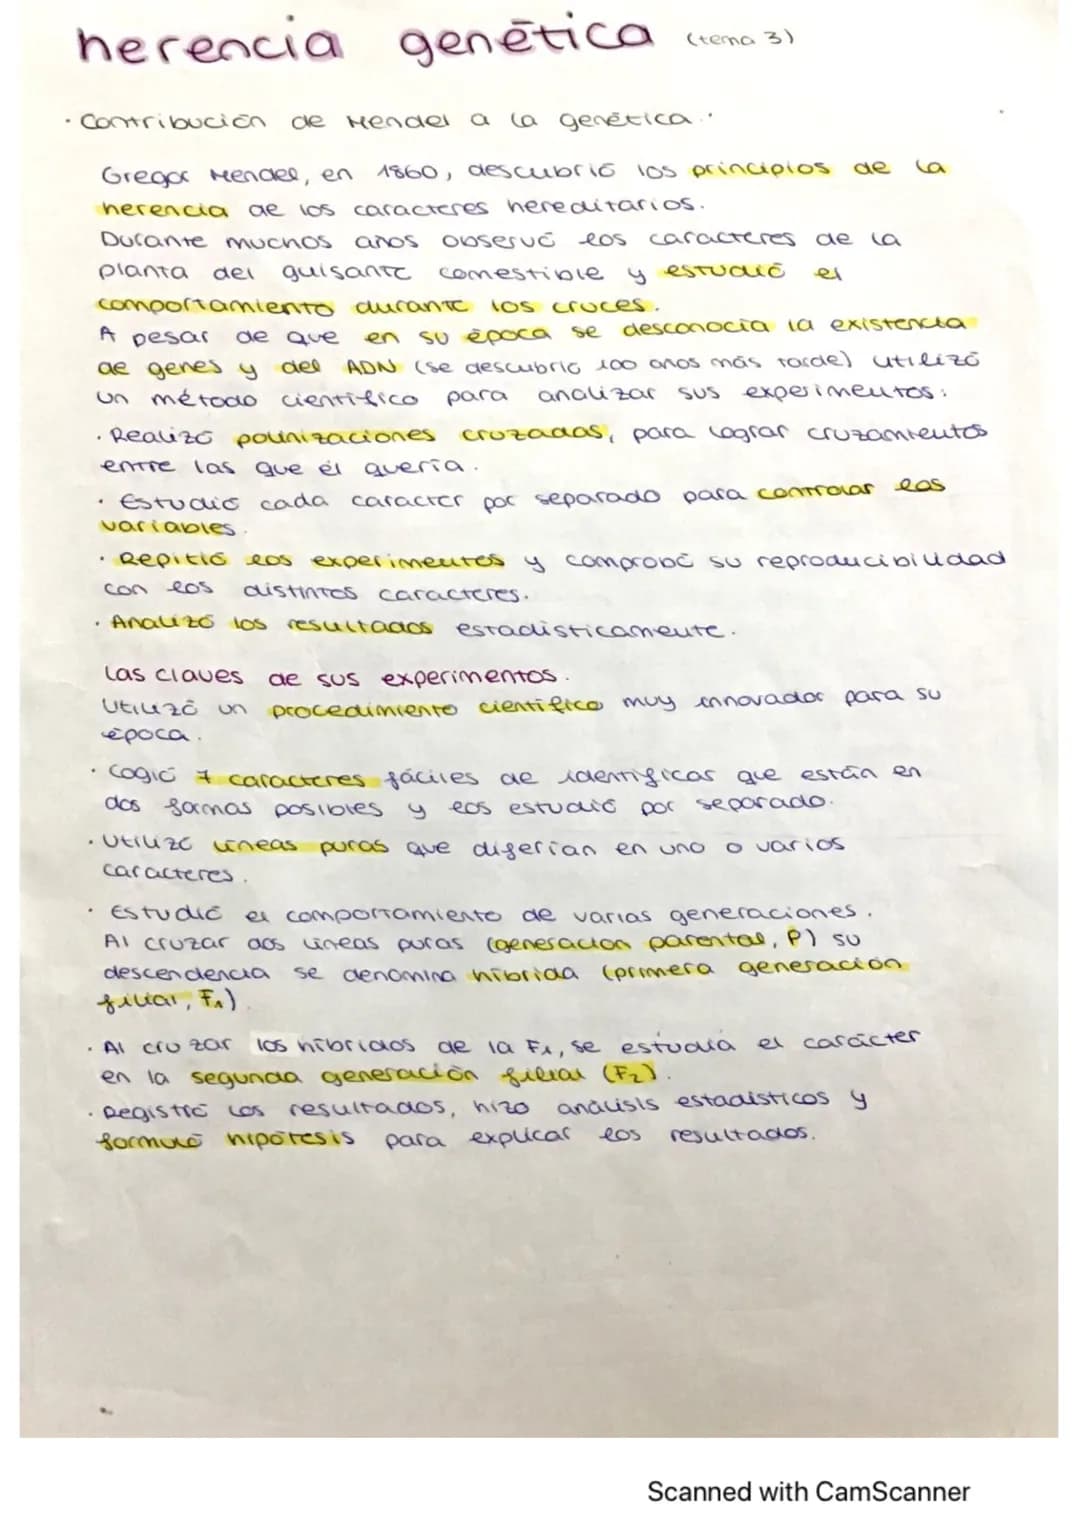 herencia genética (tema 3)
· Contribución de Mendel a la genética.·
Gregor Mendel, en 1860, descubrió los principios de la
herencia de los caracteres hereditarios.
Durante muchos años observó los caracteres de la
planta del guisante comestible y estudió el
comportamiento durante los cruces.
A pesar de que en su época se desconocía la existencia
de genes y del ADN (se descubrió 100 años más tarde) utilizó
un método científico para analizar sus experimentos:
· Realizó polinizaciones cruzadas, para lograr cruzamientos
entre las que él quería.
· Estudió cada carácter por separado para controlar las
variables.
· Repitió los experimentos y comprobó su reproducibilidad
con los distintos caracteres.
· Analizó los resultados estadísticamente.
Las claves de sus experimentos.
Utilizó un procedimiento científico muy innovador para su
época.
· Cogió 7 caracteres fáciles de identificar que están en
dos formas posibles y los estudió por separado.
· Utilizó líneas puras que diferían en uno o varios
caracteres.
· Estudió el comportamiento de varias generaciones.
Al cruzar dos líneas puras (generación parental, P) su
descendencia se denomina híbrida (primera generación
filial, F₁)
· Al cruzar los híbridos de la F₁, se estudia el carácter
en la segunda generación filial (F₂).
· Registró los resultados, hizo análisis estadísticos y
formuló hipótesis para explicar los resultados.
Scanned with CamScanner